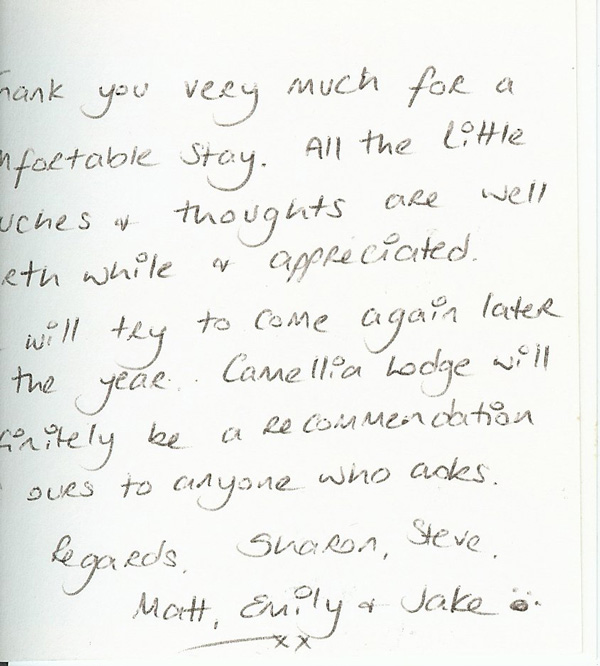 hank you very much for a
mfortable stay. All the little
uches & thoughts are well
rth while & appreciated.
will try to come again later
the year.. Camellia Lodge will
finitely be a recommendation
ours to anyone who asks.
Regards. Sharon, Steve.
Matt, Emily & Jake
xx